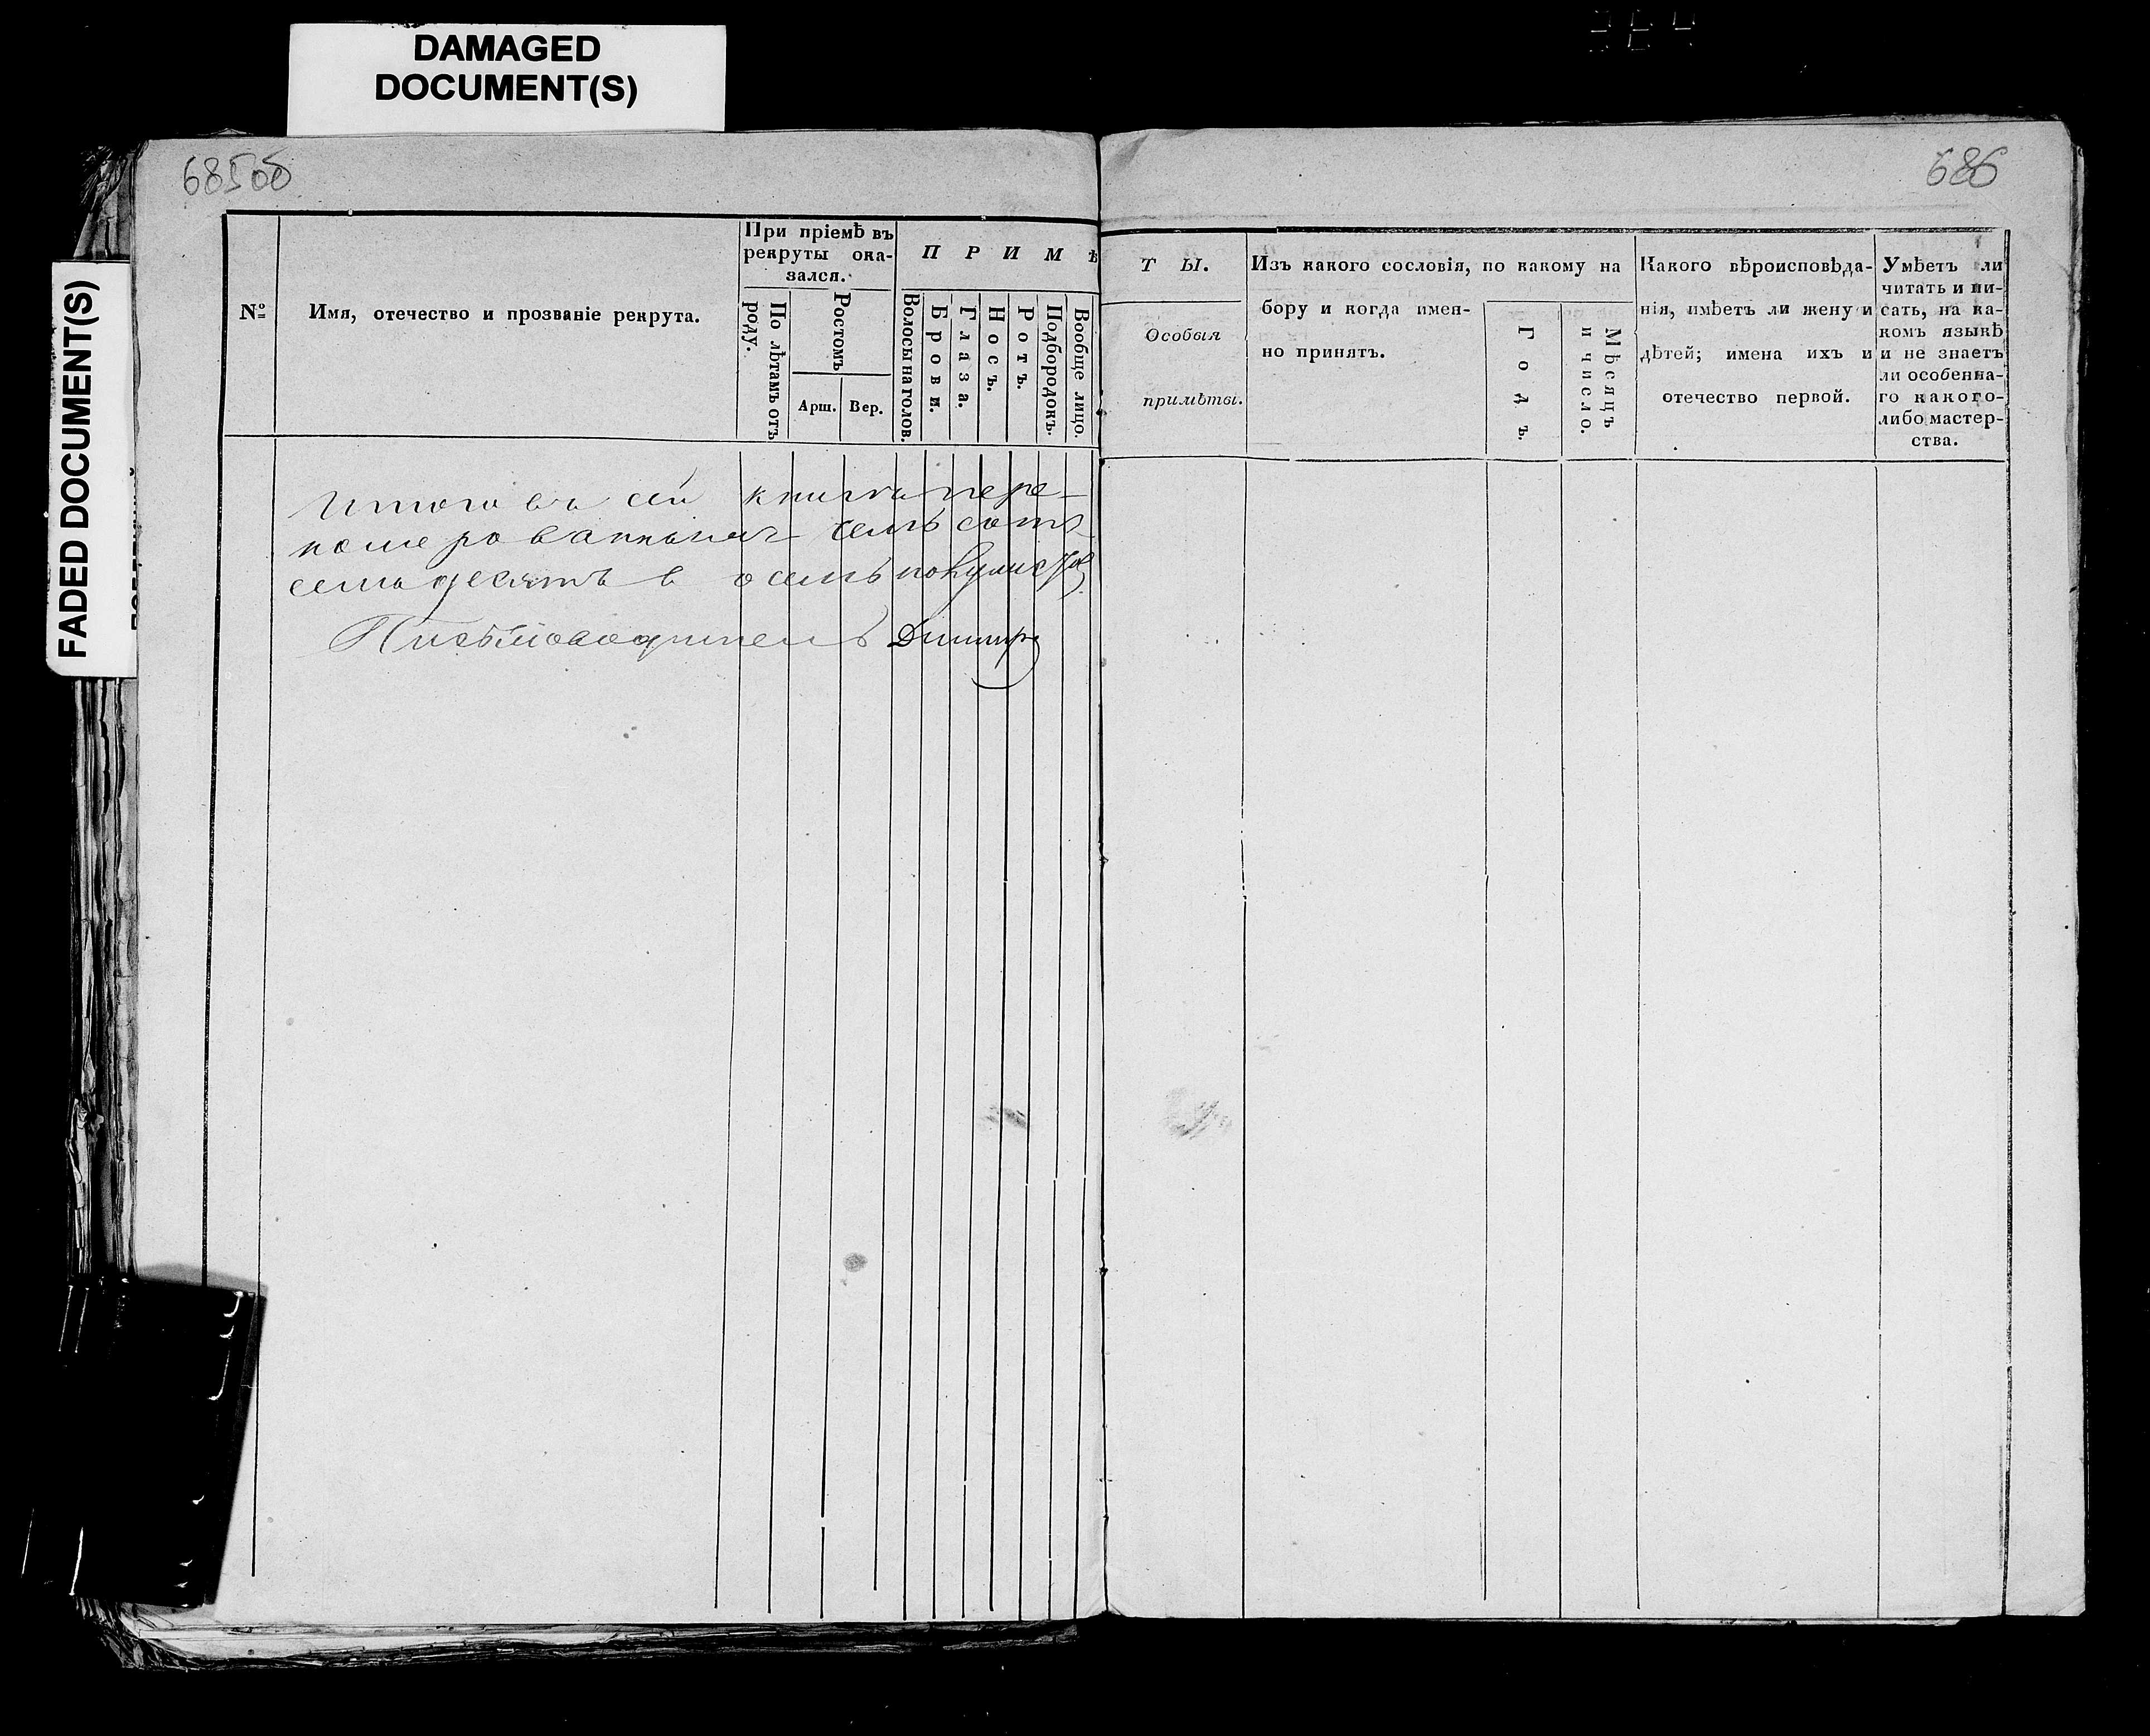 DAMAGED
DOCUMENT(S)
FADED DOCUMENT(S)
685об
686
№
Имя, отечество и прозваніе рекрута.
При пріемѣ въ
рекруты ока-
зался.
По лѣтамъ отъ
роду.
Ростомъ
Арш.
Вер.
ПРИМѢ
Волосы на голов.
Брови.
Глаза.
Носъ.
Ротъ.
Подбородокъ.
Вообще лицо.
ТЫ.
Особыя
примѣты.
Изъ какого сословія, по какому на
бору и когда имен-
но принятъ.
Годъ.
Мѣсяцъ
и число.
Какого вѣроисповѣда-
нія, имѣетъ ли жену и
дѣтей; имена ихъ и
отечество первой.
Умѣетъ ли
читать и пи-
сать, на ка-
комъ языкѣ
и не знаетъ
ли особенна-
го какого-
либо мастер-
ства.
Итого въ сей книги пере-
номерованныхъ семь сотъ
семьдесятъ восемь
Письмоводитель